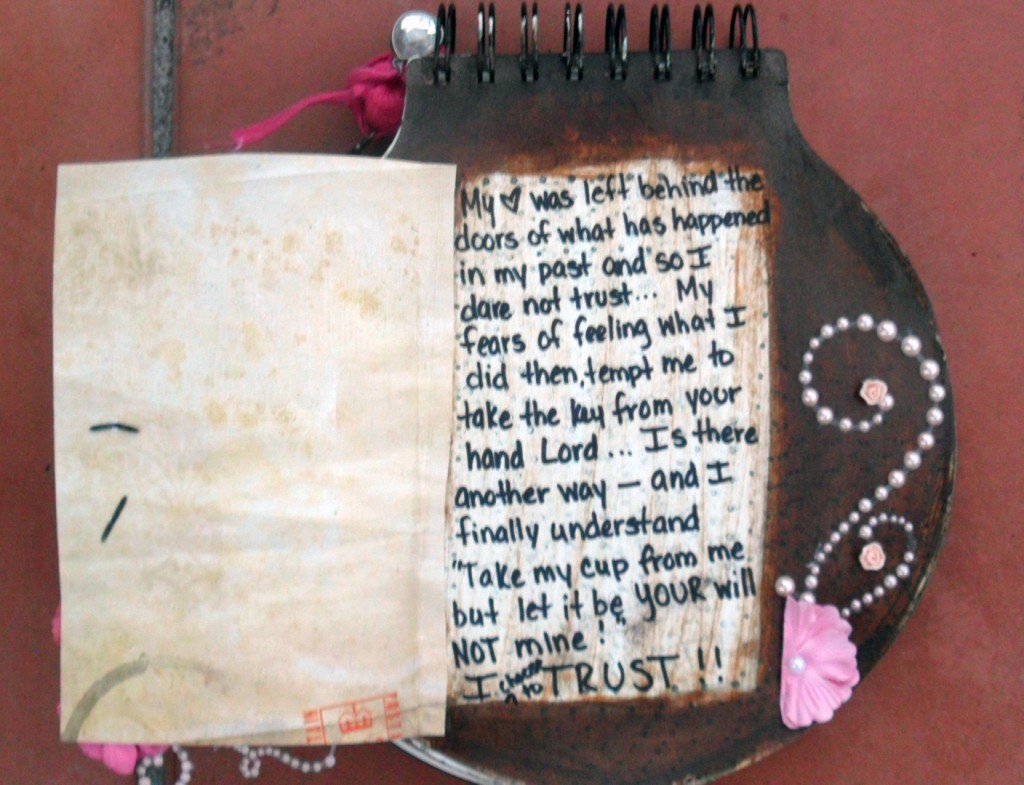 My ♡ was left behind the
doors of what has happened
in my past and so I
dare not trust... My
fears of feeling what I
did then, tempt me to
take the key from your
hand Lord... Is there
another way — and I
finally understand
"Take my cup from me
but let it be YOUR will
NOT mine!
I choose to TRUST!!